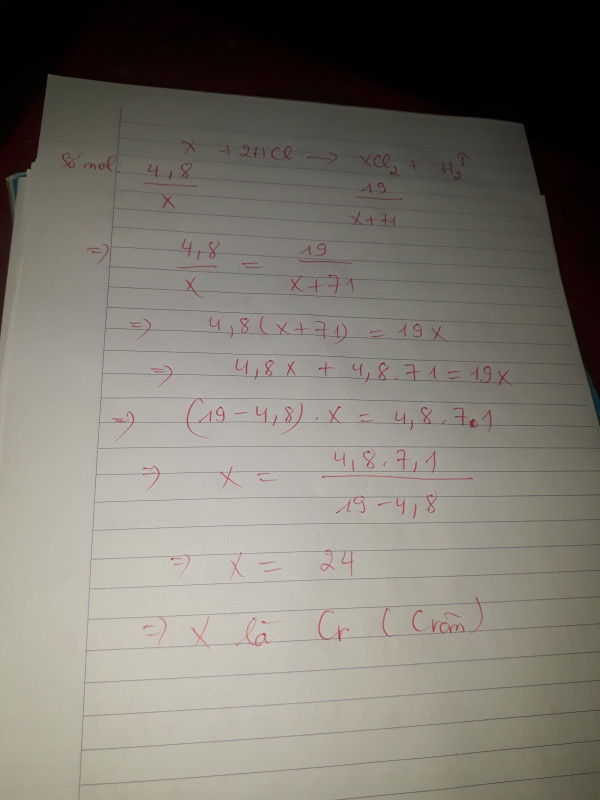 X + 2HCl → XCl₂ + H₂↑
Số mol: 4,8/X 19/X+71
=> 4,8/X = 19/X+71
=> 4,8(X+71) = 19X
=> 4,8X + 4,8.71 = 19X
=> (19-4,8).X = 4,8.7.1
=> X = 4,8.7,1/19-4,8
=> X = 24
=> X là Cr (Crôm)